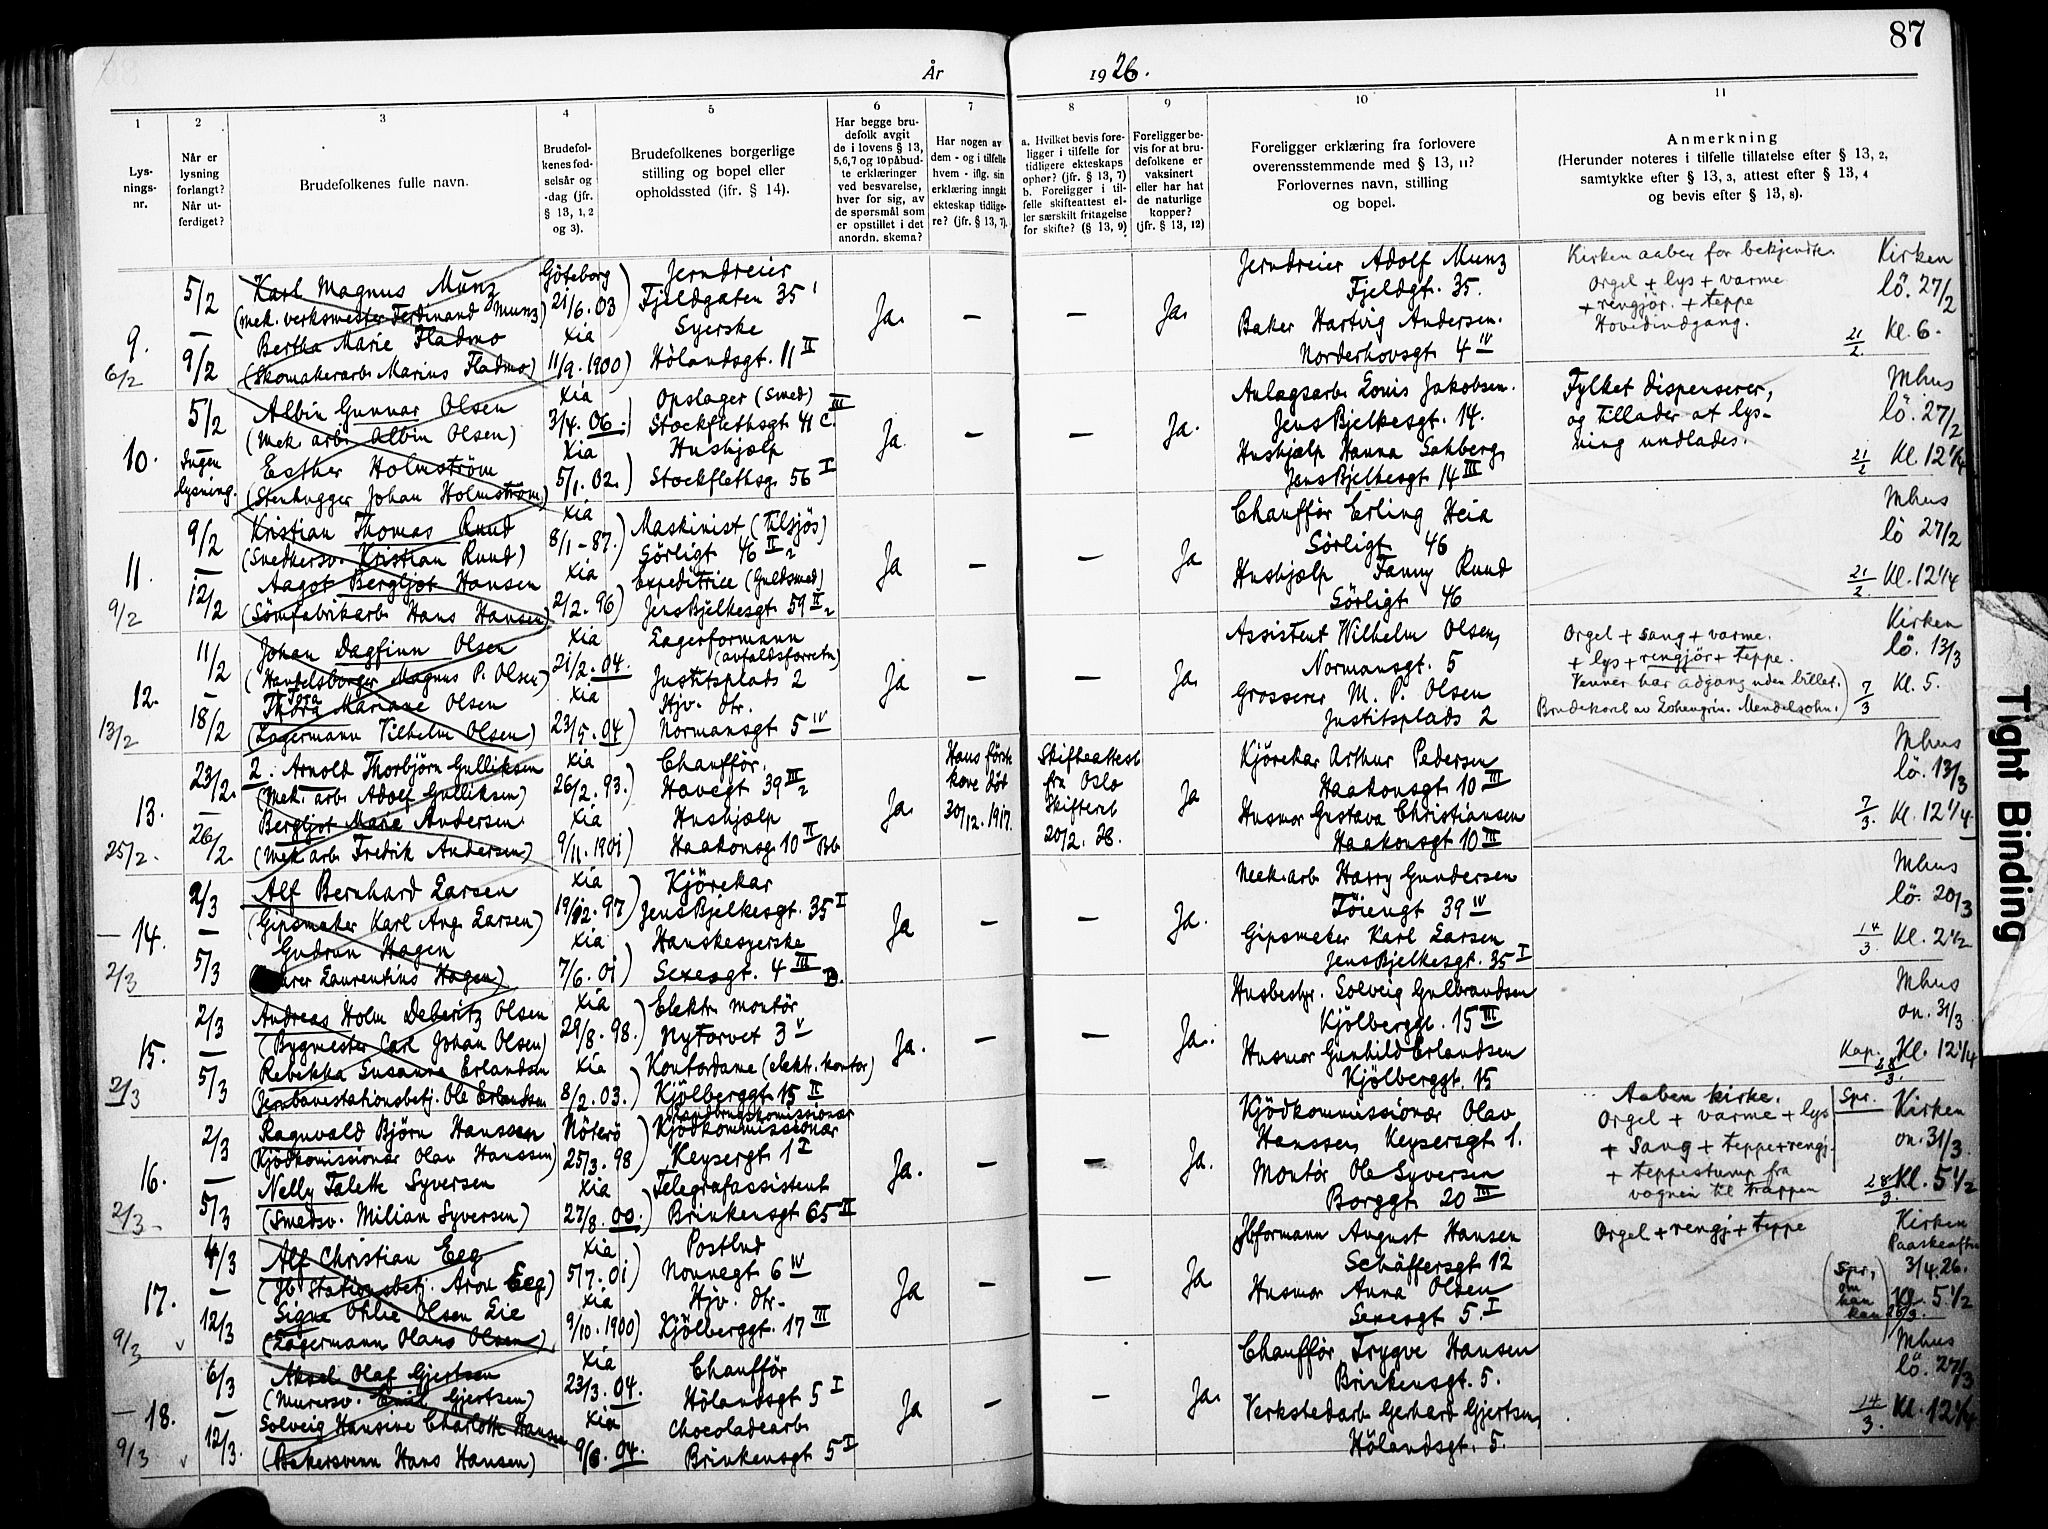 87
År 1926.
1 2 3 4 5 6 7 8 9 10 11
Lys-
nings-
nr.
Når er
lysning
forlangt?
Når ut-
ferdiget?
Brudefolkenes fulle navn.
Brudefol-
kenes fød-
selsår og
-dag (jfr.
§ 13, 1, 2
og 3).
Brudefolkenes borgerlige
stilling og bopel eller
opholdssted (jfr. § 14).
Har begge bru-
defolk avgit
de i lovens § 13,
5,6,7 og 10 påbud-
te erklæringer
ved besvarelse,
hver for sig, av
de spørsmål som
er opstillet i det
anordn. skema?
Har nogen av
dem - og i tilfelle
hvem - iflg. sin
erklæring inngått
ekteskap tidlige-
re? (jfr. § 13, 7).
a. Hvilket bevis fore-
ligger i tilfelle for
tidligere ekteskaps
ophør? (jfr. § 13, 7)
b. Foreligger i til-
felle skifteattest el-
ler særskilt fritagelse
for skifte? (§ 13, 9)
Foreligger be-
vis for at bru-
defolkene er
vaksinert
eller har hat
de naturlige
kopper?
(jfr. § 13, 12)
Foreligger erklæring fra forlovere
overensstemmende med § 13, 11?
Forlovernes navn, stilling
og bopel.
Anmerkning
(Herunder noteres i tilfelle tillatelse efter § 13, 2,
samtykke efter § 13, 3, attest efter § 13, 4
og bevis efter § 13, 8).
9.
6/2
5/2
—
9/2
Karl Magnus Munz
(Mek. verksmester Ferdinand Munz)
Bertha Marie Fladmo
(Skomakerarb. Marius Fladmo)
Göteborg
21/6. 03)
Xia
11/9. 1900)
Jerndreier
Fjeldgaten 35
Syerske
Hölandsgt. 11 II
Ja. — — Ja.
Jerndreier Adolf Munz
Fjeldgt. 35.
Baker Hartvig Andersen.
Norderhovsgt. 4 IV
Kirken aaben for bekjendte.
Orgel + lys + varme
+ rengjör. + teppe
Hovedindgang.
Kirken
lö. 27/2
21/2. Kl. 6.
10.
5/2
Ingen
lysning.
Albin Gunnar Olsen
(Mek. arb. Albin Olsen)
Esther Holmström
(Stenhugger Johan Holmström)
Xia
3/4. 06.)
Xia
5/1. 02.)
Opslager (Smed)
Stockflethsgt. 41 C. III
Hushjælp
Stockflethsg. 56 I
Ja. — — Ja.
Anlagsarb. Louis Jakobsen.
Jens Bjelkesgt. 14.
Hushjælp Hanna Sahberg
Jens Bjelkesgt. 14 III
Fylket dispenserer,
og tillader at lys-
ning undlades.
Mhus
lö. 27/2
21/2 Kl. 12 1/4
11.
9/2
9/2
—
12/2
Kristian Thomas Ruud
(Snedkersv. Kristian Ruud)
Aagot Bergljot Hansen
(Sömfabrikarb. Hans Hansen)
Xia
8/1 - 87.)
Xia
2/2. 96)
Maskinist (Tilsjös)
Sörligt. 46 II
Expeditrice (Guldsmed)
Jens Bjelkesgt. 59 II
Ja — — Ja
Chauffør Erling Heia
Sörligt. 46
Hushjælp Fanny Ruud
Sörligt 46
Mhus
lö 27/2
21/2 Kl. 12 1/4
12.
13/2
11/2
—
18/2
Johan Dagfinn Olsen
(Handelsborger Magnus P. Olsen)
Thora Mariane Olsen
(Lagermann Vilhelm Olsen)
Xia
21/2. 04.
Xia
23/5. 04)
Lagerformann
(avfaldsforretn)
Justitsplads 2
Hjv. dtr.
Normansgt 5 IV
Ja — — Ja.
Assistent Wilhelm Olsen,
Normansgt. 5
Grosserer M. P. Olsen
Justitsplads 2
Orgel + sang + varme.
+ lys + rengjör + teppe.
Venner har adgang uden billet.
Brudekoret av Lohengrin. Mendelsohn.)
Kirken
lö. 13/3
7/3 Kl. 5.
13.
25/2.
23/2.
—
26/2.
2. Arnold Thorbjörn Gulliksen
(Mek. arb. Adolf Gulliksen)
Bergljot Marie Andersen.
(Mek arb. Fredrik Andersen)
Xia
26/2. 93.)
Xia
9/11. 1901)
Chauffør.
Hovegt 39 III
Hushjælp
Haakonsg. 10 II Bb.
Ja.
Hans förste
kone död
30/12. 1917.
Skifteattest
fra Oslo
Skifteret
20/2. 26.
Ja
Kjörekar Arthur Pedersen
Haakonsgt. 10 III
Husmor Gustava Christiansen
Haakonsgt 10 III
Mhus
lö. 13/3
7/3. Kl. 12 1/4.
— 14.
2/3
2/3
—
5/3
Alf Bernhard Larsen
(Gipsmaker Karl Aug. Larsen)
Gudrun Hagen
(Murer Laurentius Hagen)
Xia
19/12. 97)
Xia
7/6. 01)
Kjörekar
Jens Bjelkesgt. 35 I
Hanskesyerske
Sexesgt. 4 III B.
Ja — — Ja.
Mek. arb. Harry Gundersen
Töiengt 39 IV
Gipsmaker Karl Larsen
Jens Bjelkesgt. 35 I
Mhus
lö. 20/3
14/3. Kl. 2 1/2
15.
2/3
2/3
—
5/3
Andreas Holm Deberitz Olsen
(Bygmester Carl Johan Olsen)
Rebekka Susanna Erlandsen
(Jernbanestationsbetj. Ole Erlandsen
Xia
29/8. 98.)
Xia
8/2. 03.)
Elektr. montör
Nytorvet 3 V
Kontordame (elektr. kontor)
Kjölberggt. 15 II
Ja. — — Ja.
Husbestyr. Solveig Gulbrandsen
Kjölberggt. 15 III
Husmor Gunhild Erlandsen
Kjölberggt. 15
Mhus
on. 31/3
Kap. Kl. 12 1/4
28/3.
16.
2/3 -
2/3
—
5/3
Ragnvald Björn Hanssen
(Kjödkomissionær Olav Hanssen)
Nelly Talette Syversen
(Smedsv. Milian Syversen)
Nöterö
25/3. 98)
Xia
27/8. 00.)
Landbrugskomissionær
Kjödkommissionær
Keysergt. 1 I
Telegrafassistent
Brinkensgt 65 II
Ja. — — Ja.
Kjödkommissionær Olav
Hanssen, Keysersgt 1.
Montör Ole Syversen
Borggt. 20 III
Aaben kirke.
Orgel + varme + lys
+ Sang + teppe + rengj.
+ teppestump fra
vognen til trappen
Spr. Kirken
on. 31/3
28/3. Kl. 5 1/2
17.
9/3 v
4/3
—
12/3
Alf Christian Eeg
(Jb. Stationsbetj. Aron Eeg)
Signe Othlie Olsen Lie
(Lagermann Olaus Olsen)
Xia
5/7. 01)
Xia
9/10. 1900)
Postbud
Nonnegt 6 IV
Hjv. dtr.
Kjölberggt. 17 III
Ja — — Ja
Jbformann August Hansen
Schäffersgt 12
Husmor Anna Olsen
Sexesgt 5. I
Orgel + rengj + teppe
Kirken
Paaskeaften
3/4. 26.
(Spr,
om
han
kan)
Kl. 5 1/2
28/3.
— 18.
9/3 v
6/3
—
12/3.
Aksel Olaf Gjertsen
(Murersv. Emil Gjertsen)
Solveig Hansine Charlotte Hansen
(Bakersvenn Hans Hansen)
Xia
23/3. 04.
Xia
9/8. 04.
Chauffør
Hölandsgt 5 I
Chocoladearb.
Brinkensgt 5 I
Ja — — Ja.
Chauffør Trygve Hansen
Brinkensgt. 5.
Verkstedarb. Gerhard Gjertsen,
Hölandsgt. 5.
Mhus
lö. 27/3
14/3. Kl. 12 1/4
Tight Binding